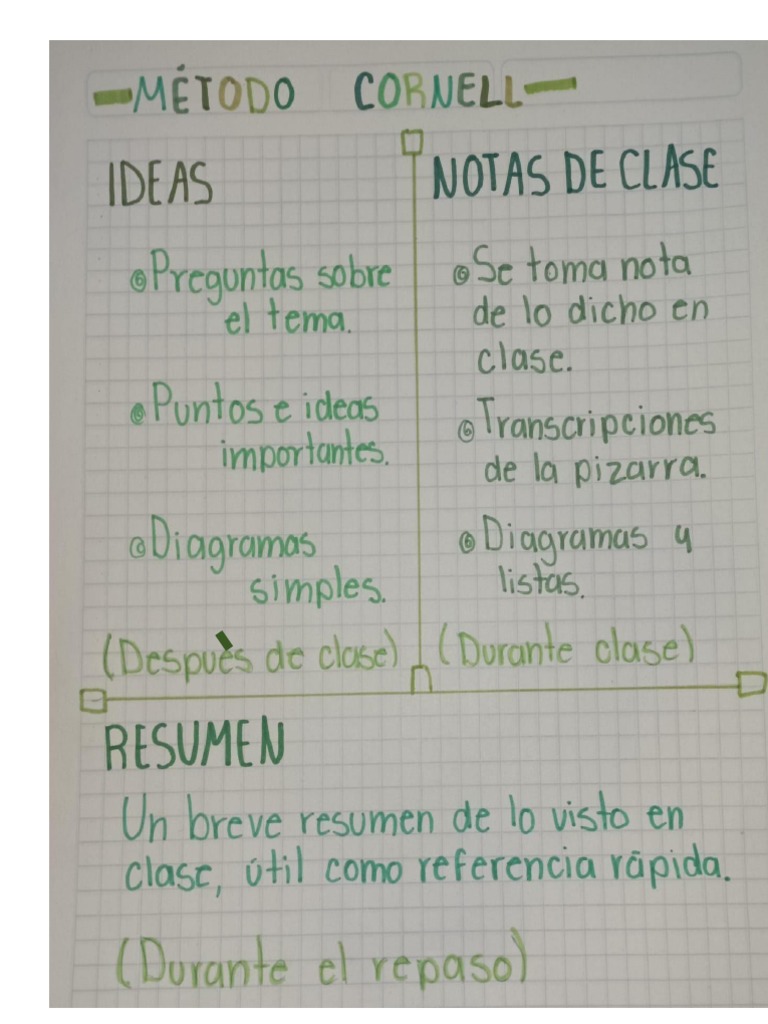 MÉTODO CORNELL
IDEAS
Preguntas sobre
el tema.
Puntos e ideas
importantes.
Diagramas
simples.
(Despuès de clase)
NOTAS DE CLASE
Se toma nota
de lo dicho en
clase.
Transcripciones
de la pizarra.
Diagramas y
listas.
(Durante clase)
RESUMEN
Un breve resumen de lo visto en
clase, útil como referencia rápida.
(Durante el repaso)